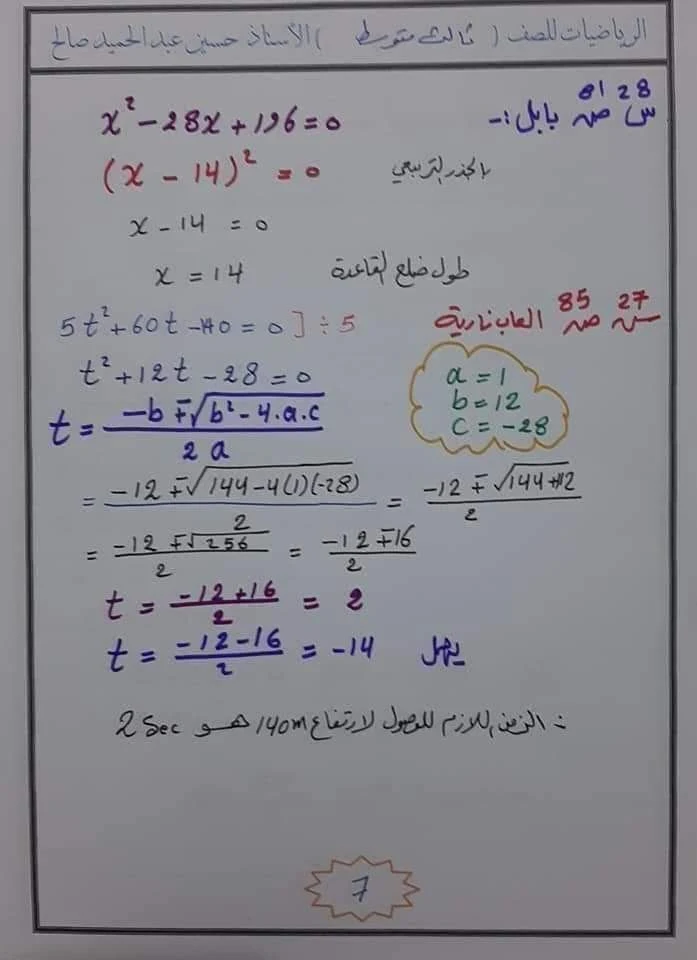 الرياضيات للصف ( ثالث متوسط ) الأستاذ حسين عبد الحميد صالح
س 28 صـ 81 بابل :-
x² - 28x + 196 = 0
(x - 14)² = 0 بالجذر التربيعي
x - 14 = 0
x = 14 طول ضلع القاعدة
س 27 صـ 85 العاب نارية
5t² + 60t - 140 = 0 ] ÷ 5
t² + 12t - 28 = 0
a = 1
b = 12
c = -28
t = (-b ∓ √(b² - 4.a.c)) / 2a
= (-12 ∓ √(144 - 4(1)(-28))) / 2 = (-12 ∓ √(144 + 112)) / 2
= (-12 ∓ √256) / 2 = (-12 ∓ 16) / 2
t = (-12 + 16) / 2 = 2
t = (-12 - 16) / 2 = -14 يهمل
∴ الزمن اللازم للوصول لارتفاع 140m هو 2 Sec
7